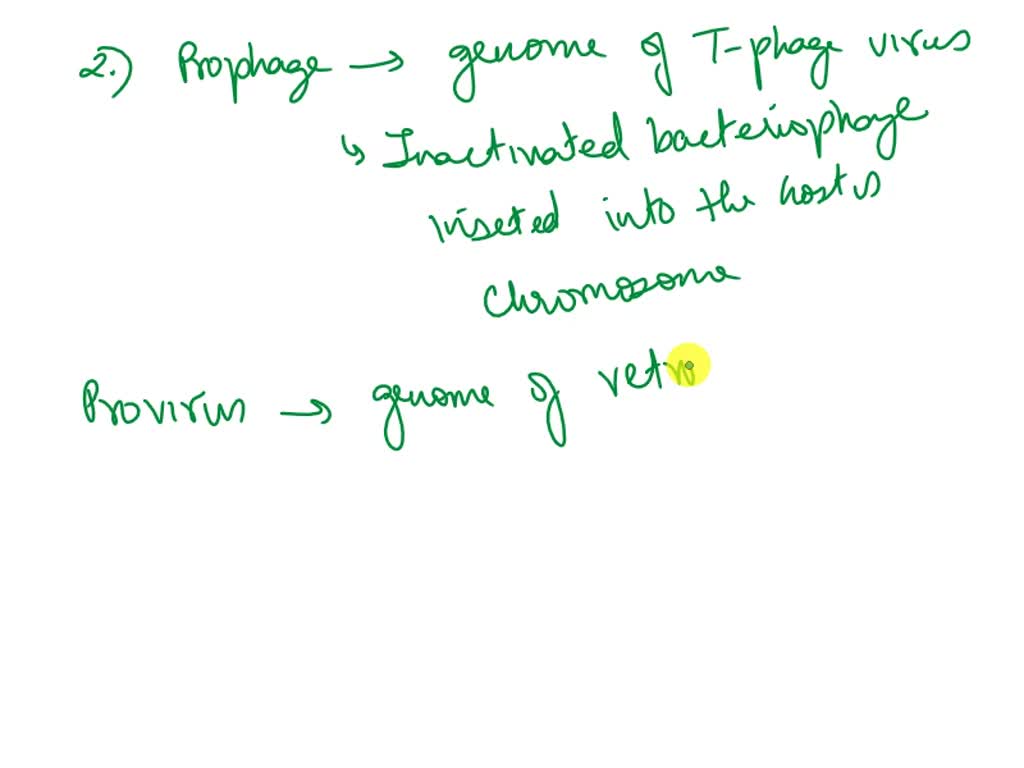 2.) Prophage → genome of T-phage virus
↳ Inactivated bacteriophage
inseted into the hosts
chromosome
Provirus → genome of retro